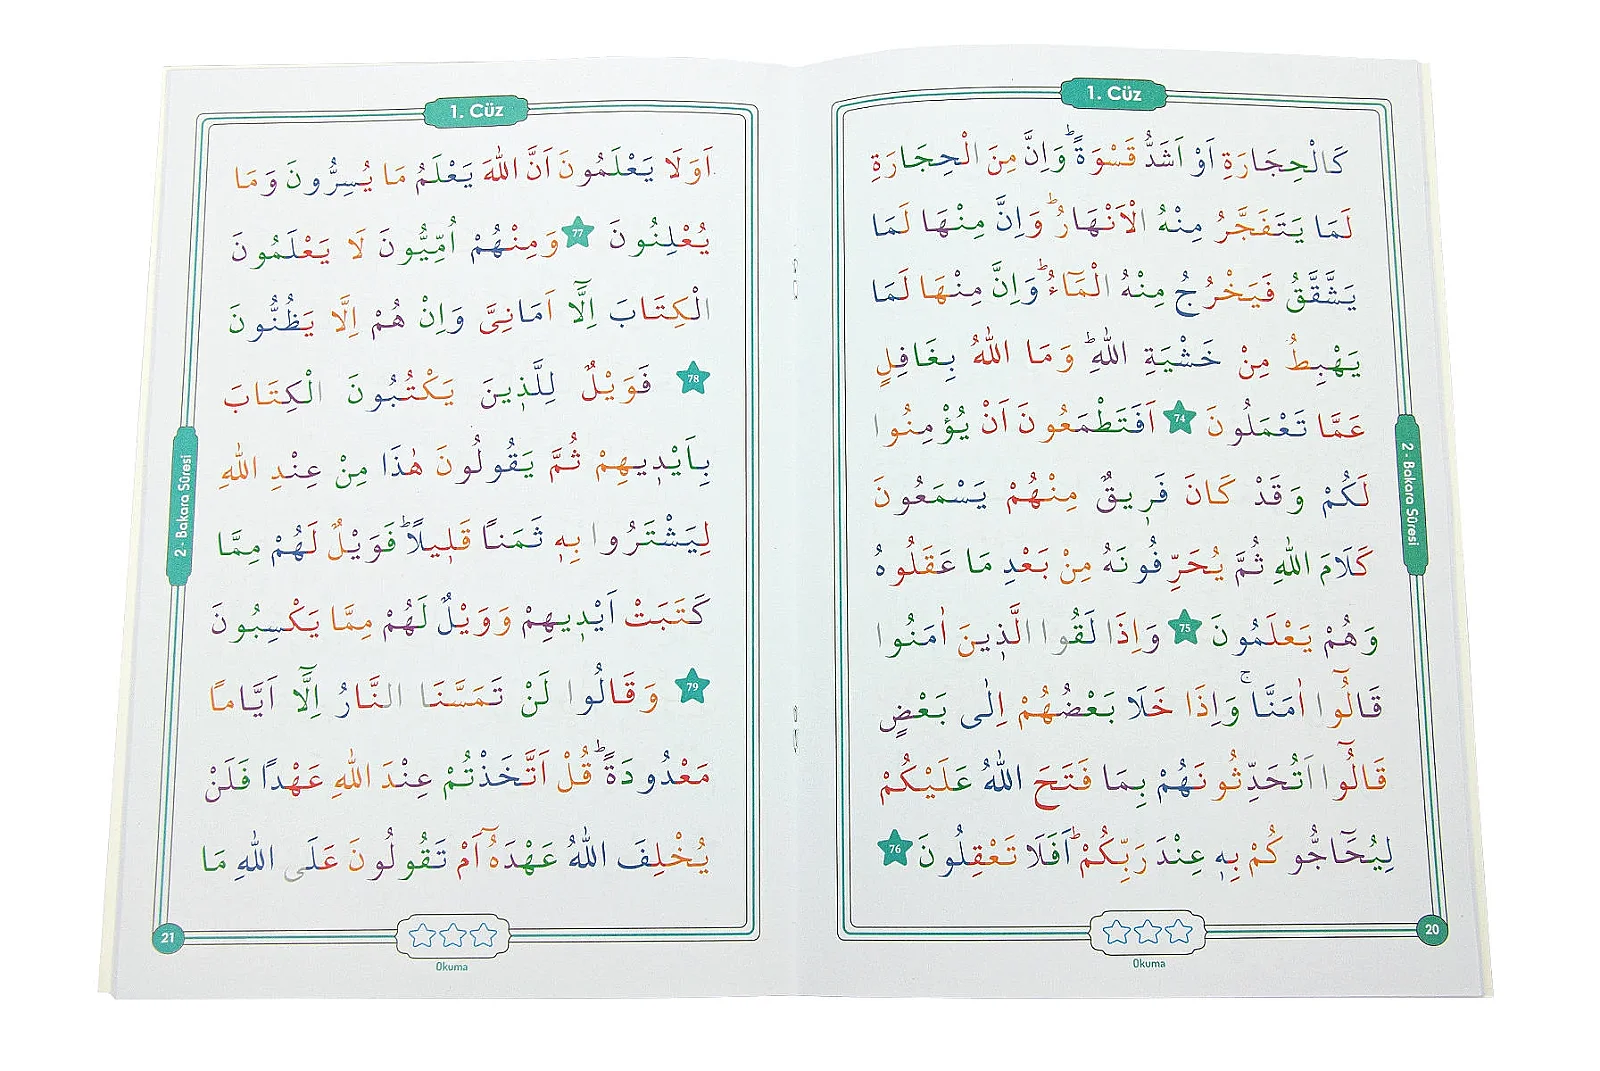 1. Cüz
كَالْحِجَارَةِ اَوْ اَشَدُّ قَسْوَةًۜ وَاِنَّ مِنَ الْحِجَارَةِ
لَمَا يَتَفَجَّرُ مِنْهُ الْاَنْهَارُۜ وَاِنَّ مِنْهَا لَمَا
يَشَّقَّقُ فَيَخْرُجُ مِنْهُ الْمَٓاءُۜ وَاِنَّ مِنْهَا لَمَا
يَهْبِطُ مِنْ خَشْيَةِ اللّٰهِۜ وَمَا اللّٰهُ بِغَافِلٍ
عَمَّا تَعْمَلُونَ 74 اَفَتَطْمَعُونَ اَنْ يُؤْمِنُوا
لَكُمْ وَقَدْ كَانَ فَرٖيقٌ مِنْهُمْ يَسْمَعُونَ
كَلَامَ اللّٰهِ ثُمَّ يُحَرِّفُونَهُ مِنْ بَعْدِ مَا عَقَلُوهُ
وَهُمْ يَعْلَمُونَ 75 وَاِذَا لَقُوا الَّذٖينَ اٰمَنُوا
قَالُٓوا اٰمَنَّاۚ وَاِذَا خَلَا بَعْضُهُمْ اِلٰى بَعْضٍ
قَالُٓوا اَتُحَدِّثُونَهُمْ بِمَا فَتَحَ اللّٰهُ عَلَيْكُمْ
لِيُحَٓاجُّوكُمْ بِهٖ عِنْدَ رَبِّكُمْۜ اَفَلَا تَعْقِلُونَ 76
2 - Bakara Sûresi
20
Okuma
1. Cüz
اَوَلَا يَعْلَمُونَ اَنَّ اللّٰهَ يَعْلَمُ مَا يُسِرُّونَ وَمَا
يُعْلِنُونَ 77 وَمِنْهُمْ اُمِّيُّونَ لَا يَعْلَمُونَ
الْكِتَابَ اِلَّٓا اَمَانِيَّ وَاِنْ هُمْ اِلَّا يَظُنُّونَ
78 فَوَيْلٌ لِلَّذٖينَ يَكْتُبُونَ الْكِتَابَ
بِاَيْدٖيهِمْ ثُمَّ يَقُولُونَ هٰذَا مِنْ عِنْدِ اللّٰهِ
لِيَشْتَرُوا بِهٖ ثَمَناً قَلٖيلاًۜ فَوَيْلٌ لَهُمْ مِمَّا
كَتَبَتْ اَيْدٖيهِمْ وَوَيْلٌ لَهُمْ مِمَّا يَكْسِبُونَ
79 وَقَالُوا لَنْ تَمَسَّنَا النَّارُ اِلَّٓا اَيَّاماً
مَعْدُودَةًۜ قُلْ اَتَّخَذْتُمْ عِنْدَ اللّٰهِ عَهْداً فَلَنْ
يُخْلِفَ اللّٰهُ عَهْدَهُٓ اَمْ تَقُولُونَ عَلَى اللّٰهِ مَا
2 - Bakara Sûresi
21
Okuma